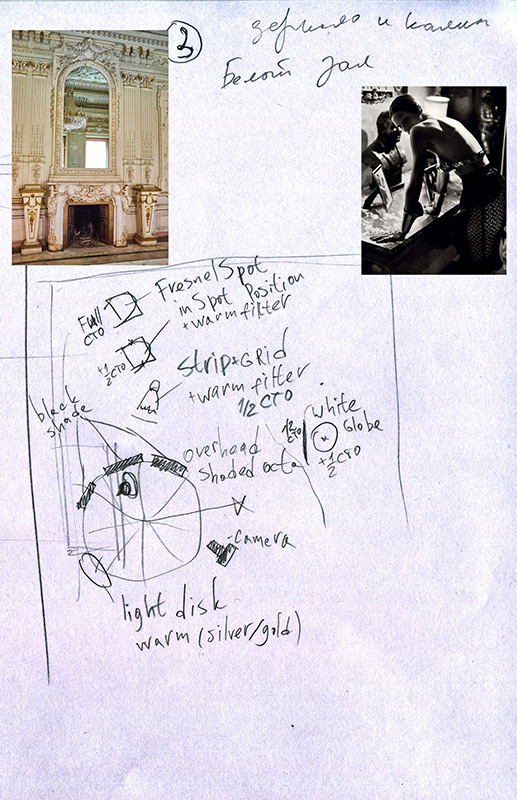 2
зеркало и камин
Белый зал
Fresnel Spot
in Spot Position
+ warm filter
Full
CTO
+1/2 CTO
Strip+GRID
+ warm filter
1/2 CTO
black
shade
overhead
shaded octa
1/2 CTO
white
Globe
+1/2
CTO
-camera
light disk
warm (silver/gold)